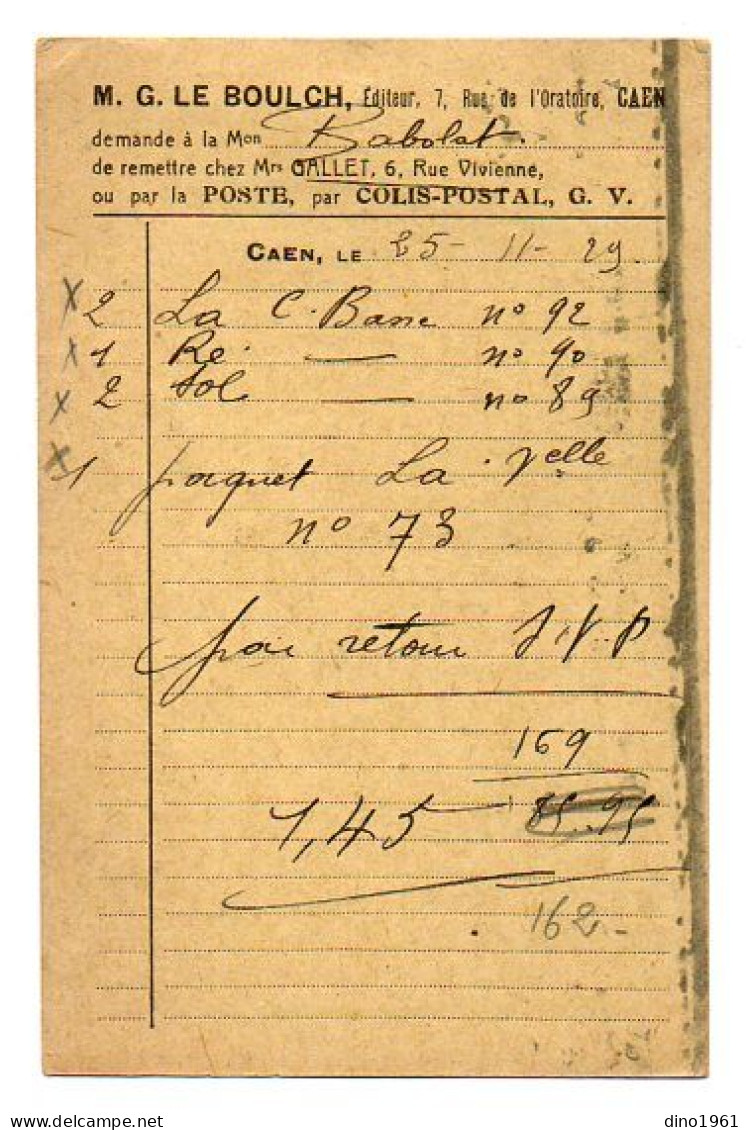 M. G. LE BOULCH, Éditeur, 7, Rue de l'Oratoire, CAEN
demande à la Mon Babolat.
de remettre chez Mrs GALLET, 6, Rue Vivienne,
ou par la POSTE, par COLIS-POSTAL, G. V.
CAEN, LE 25-11-29.
x 2 La C. Basse no 92
x 1 Ré — no 90
x 2 Sol — no 89
x 1 paquet La velle
no 73
par retour S.V.P
169
1,45 — 85.95
162-
dino1961